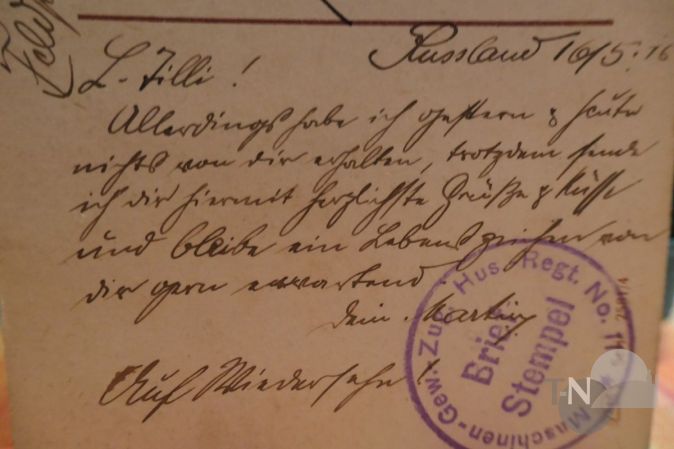 Russland 16/5.16
L. Tilli!
Allerdings habe ich gestern & heute
nichts von dir erhalten, trotzdem sende
ich dir hiermit herzlichste Grüße & Küsse
und bleibe ein Lebenszeichen von
dir gern erwartend
dein Martin
Auf Wiedersehn!
Maschinen-Gew. Zug Hus. Regt. No. 11
Brief
Stempel
T-N